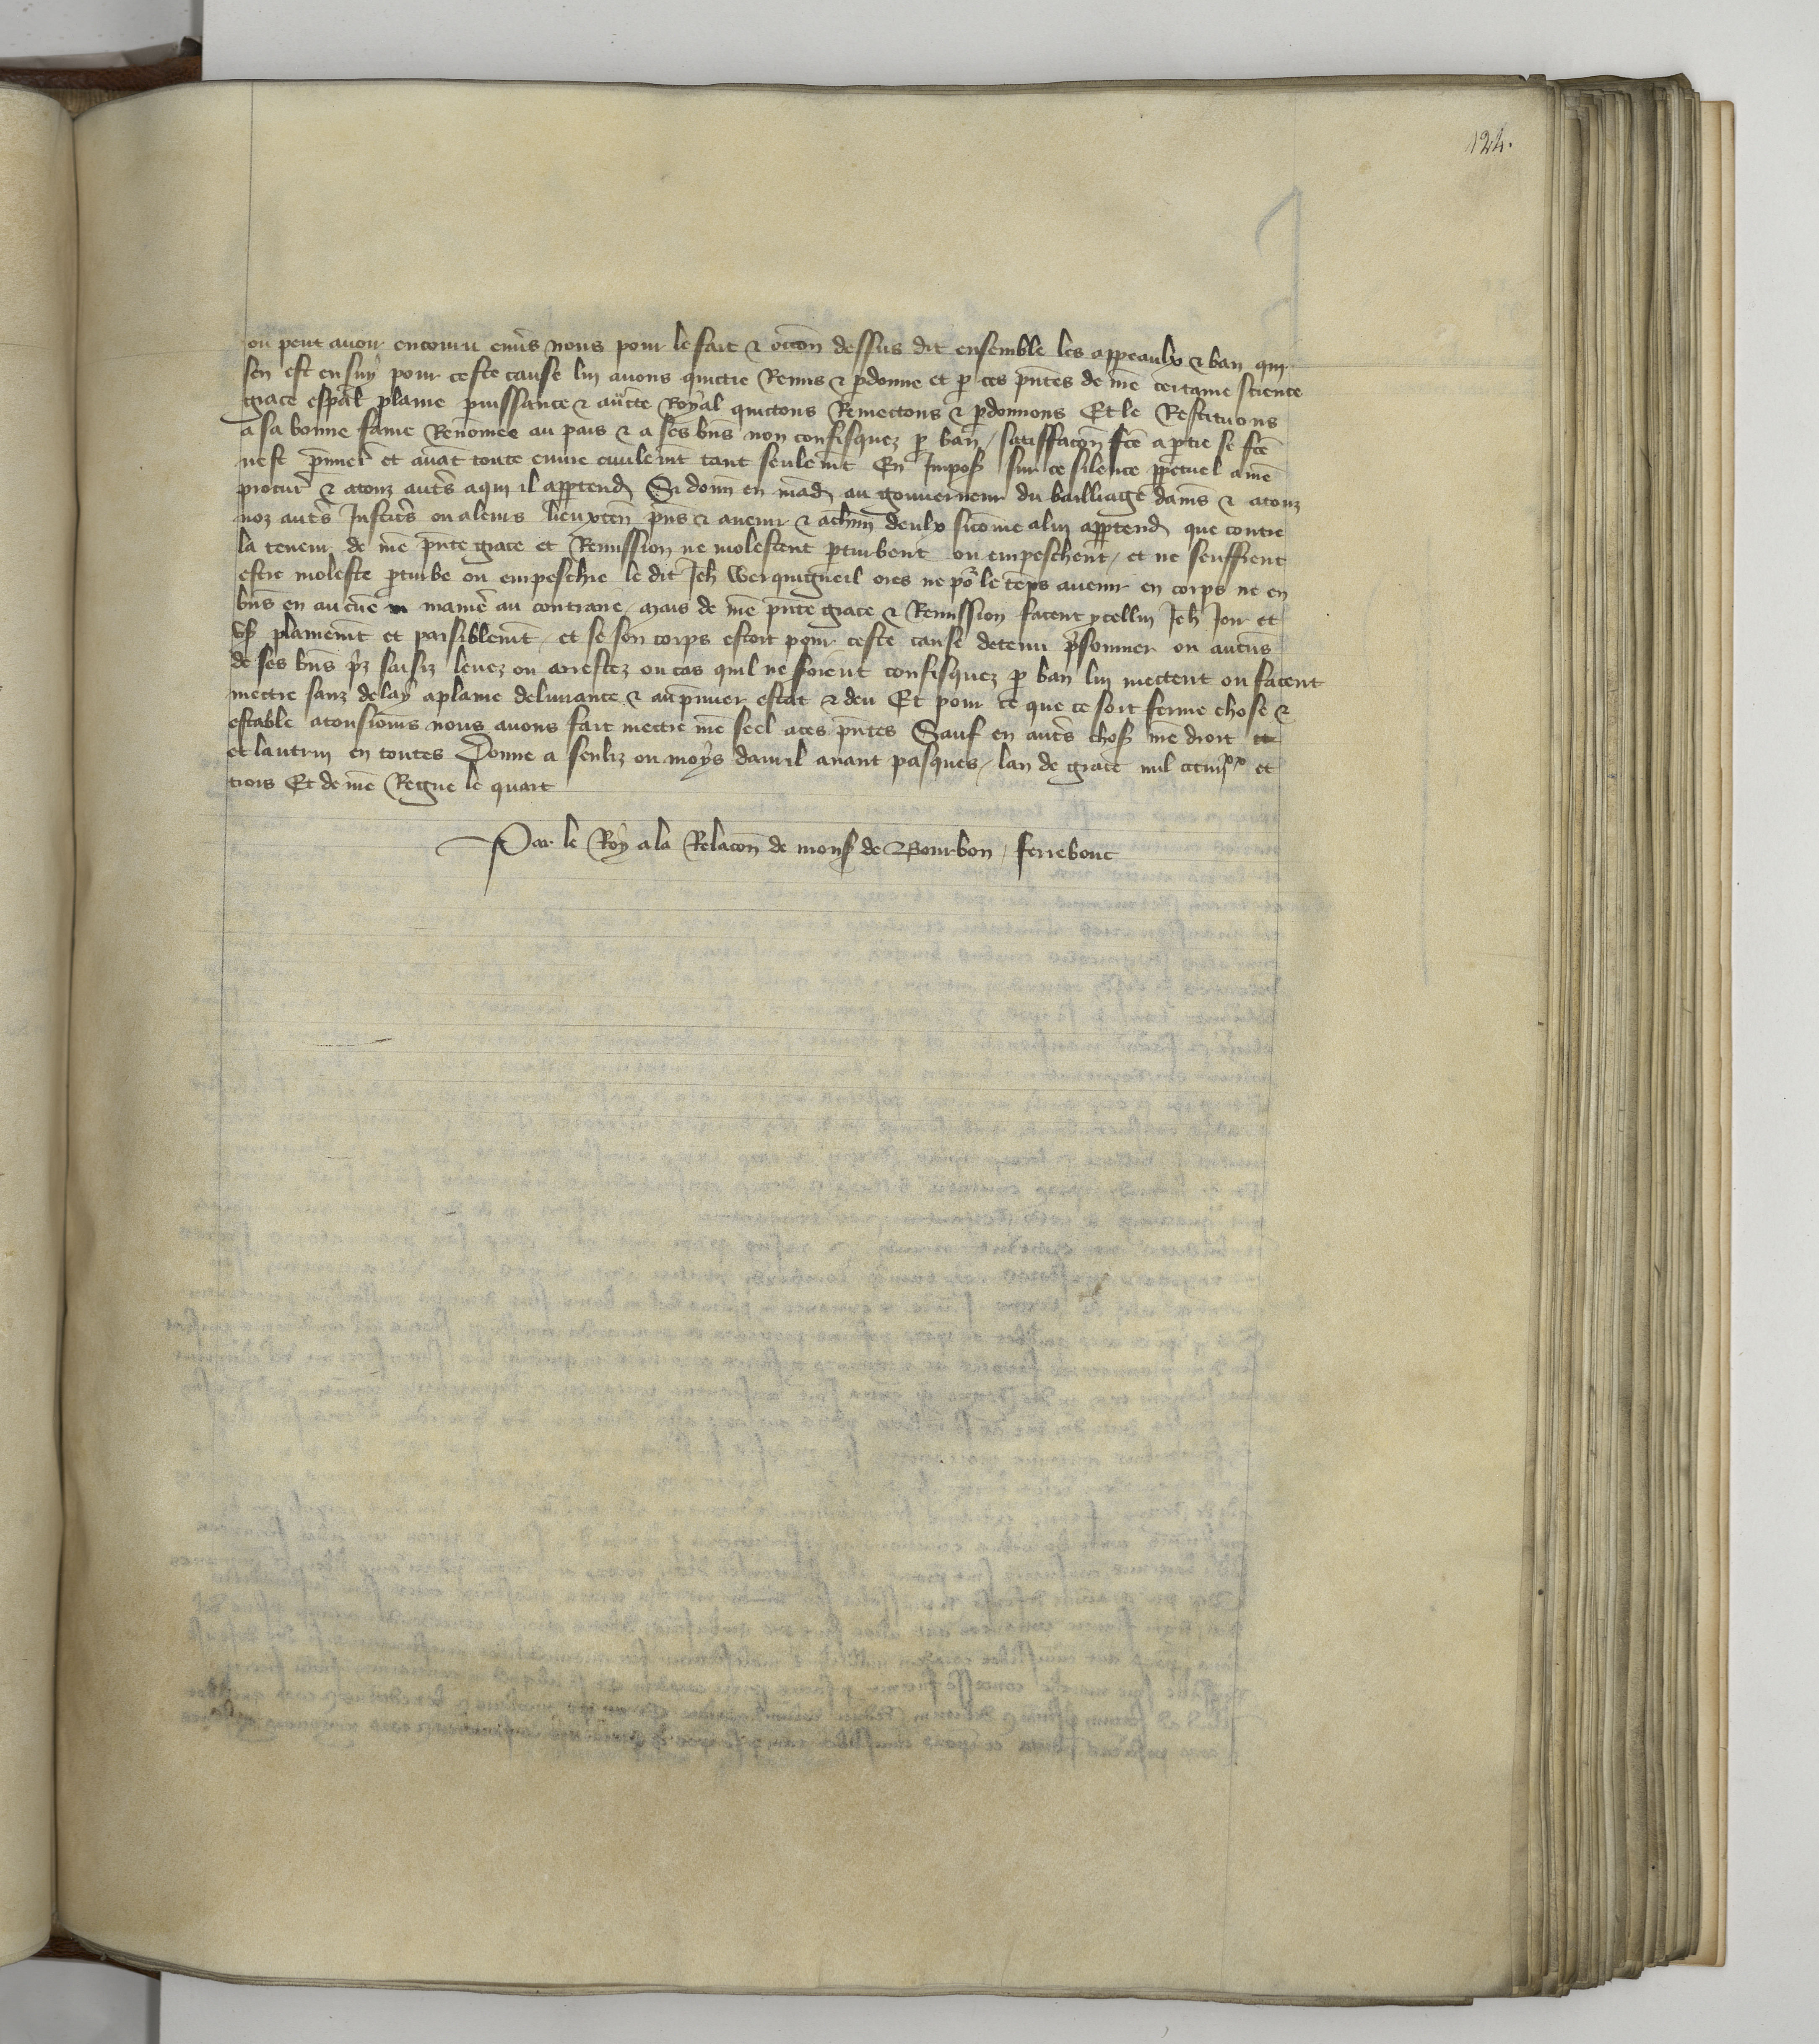 124.
ou peut avoir encouru env̾s nous pour le fait & occōn dessus dit ensemble les appeaulx & ban qui
sen est ensuÿ pour ceste cause lui avons quictie Remis & ꝑdonne et ꝑ ces p̄ntes de n̄re certaine science
grace esp̄al plaine puissance & auc̄te Royal quictons Remectons & ꝑdonnons Et le Restituons
a sa bonne fame Renōmee au pais & a ses bn̄s non confisquez ꝑ ban / satisfacōn fc̄e a ꝑtie se fc̄e
nest p̄mier̄ et avāt toute euvre civilem̄t tant seulem̄t En Imposˀ sur ce silence ꝑpetuel a n̄re
procur̄ & a touz aut̄s a qui il apꝑtend̄ Si donn̄ en mād̄ au gouverneur du bailliage damīs & a touz
noz aut̄s Justic̄s ou a leurs lieuxten̄ p̄ns & avenir & a ch̄un deulx si cōme a lui apꝑtend̄ que contre
la teneur de n̄re p̄nte grace et Remission ne molestent ꝑturbent ou empeschent / et ne seuffrent
estre moleste ꝑturbe ou empeschie le dit Jeh̄ Werquigneil ores ne po᷑ le tēps avenir en corps ne en
bn̄s en aucūe maniē au contraire / Mais de n̄re p̄nte grace & Remission facent ycellui Jeh̄ Joir et
us̄ plainem̄t et paisiblem̄t / et se son corps estoit pour ceste cause detenu p̄sonnier ou aucūs
de ses bn̄s p̄z saisiz levez ou arrestez ou cas quil ne soient confisquez ꝑ ban lui mectent ou facent
mectre sanz delaÿ a plaine delivrance & au p̄mier estat & deu Et pour ce que ce soit ferme chose &
estable a tousiou᷑s nous avons fait mectre n̄re seel a ces p̄ntes Sauf en aut̄s chosˀ n̄re droit et
et lautrui en toutes Donne a senliz ou moÿs davril avant pasques / lan de grace mil ccc iiijˣˣ et
trois Et de n̄re Regne le quart
Par le Roÿ a la Relacōn de monsˀ de Bourbon / ferrebouc